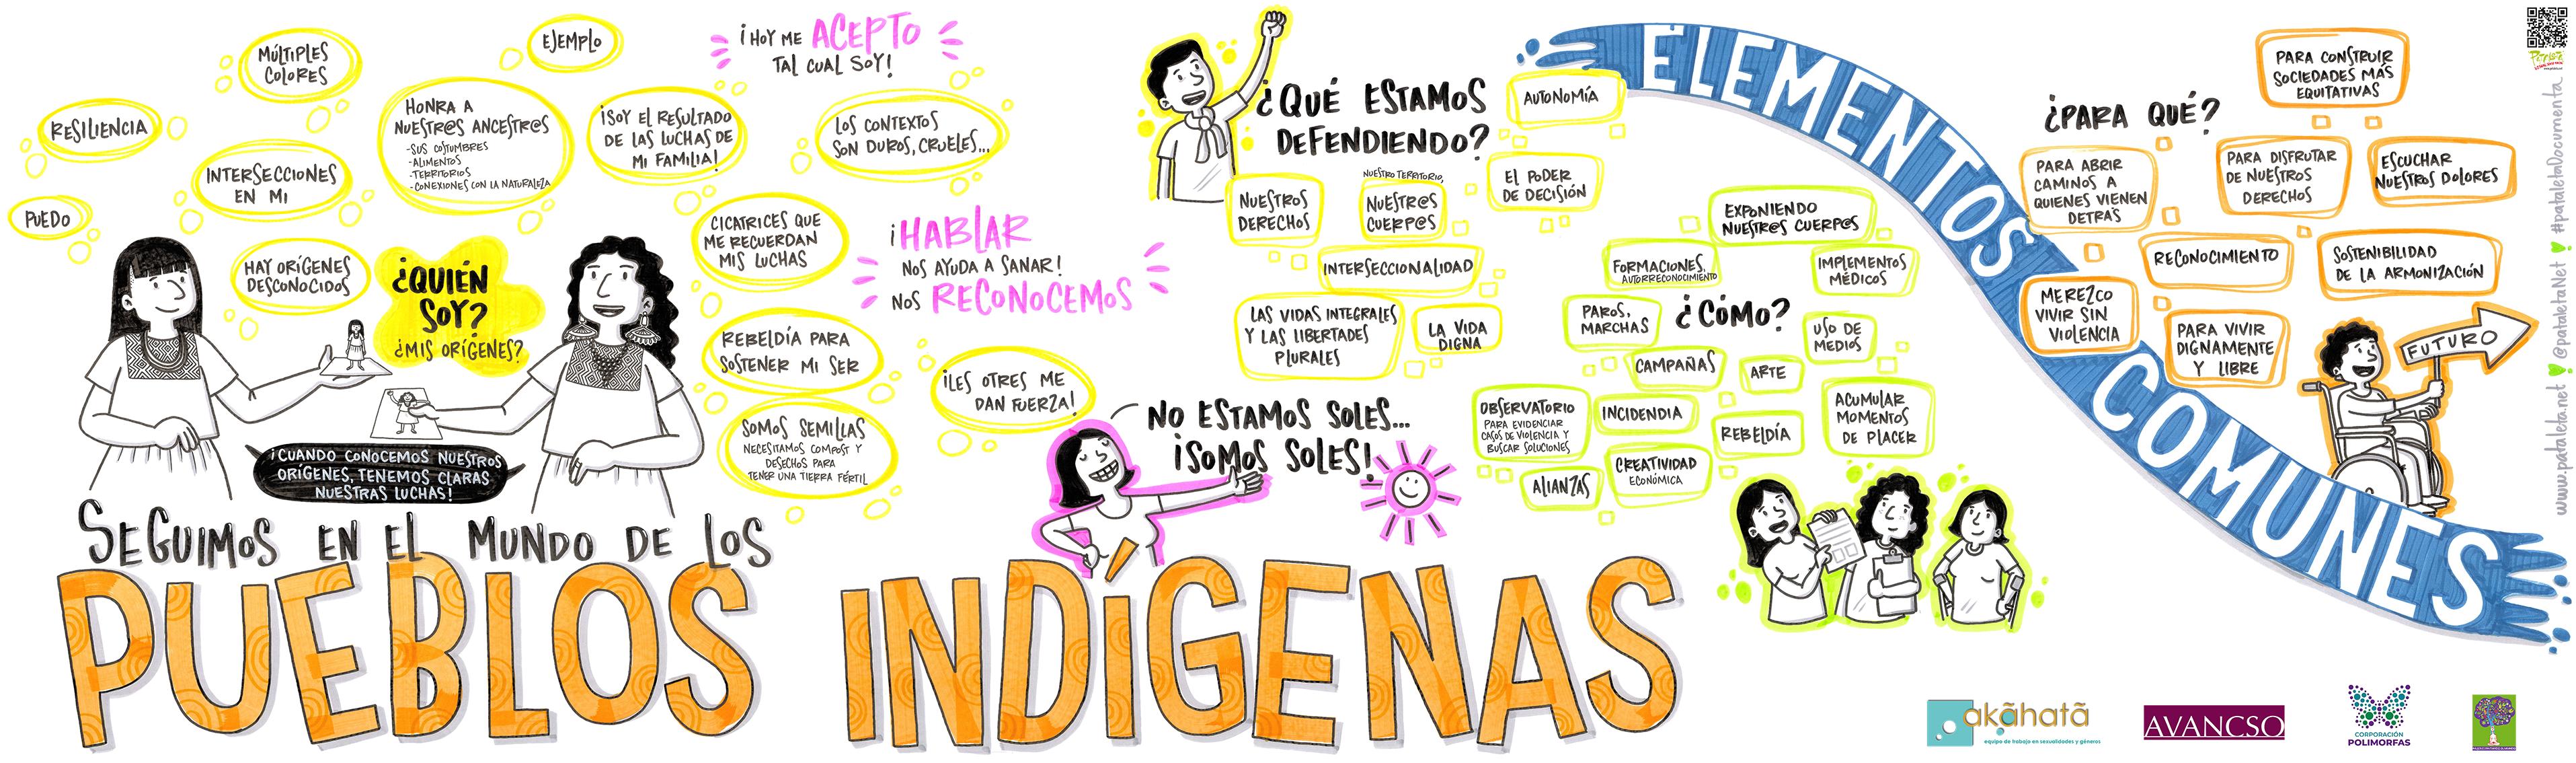 PUEDO
RESILIENCIA
MÚLTIPLES
COLORES
INTERSECCIONES
EN MI
HAY ORÍGENES
DESCONOCIDOS
HONRA A
NUESTR@S ANCESTR@S
-SUS COSTUMBRES
-ALIMENTOS
-TERRITORIOS
-CONEXIONES CON LA NATURALEZA
EJEMPLO
¡SOY EL RESULTADO
DE LAS LUCHAS DE
MI FAMILIA!
¡HOY ME ACEPTO
TAL CUAL SOY!
LOS CONTEXTOS
SON DUROS, CRUELES...
CICATRICES QUE
ME RECUERDAN
MIS LUCHAS
REBELDÍA PARA
SOSTENER MI SER
SOMOS SEMILLAS
NECESITAMOS COMPOST Y
DESECHOS PARA
TENER UNA TIERRA FÉRTIL
¿QUIÉN
SOY?
¿MIS ORÍGENES?
¡CUANDO CONOCEMOS NUESTROS
ORÍGENES, TENEMOS CLARAS
NUESTRAS LUCHAS!
¡HABLAR
NOS AYUDA A SANAR!
NOS RECONOCEMOS
¡LES OTRES ME
DAN FUERZA!
NO ESTAMOS SOLES...
¡SOMOS SOLES!
SEGUIMOS EN EL MUNDO DE LOS
PUEBLOS INDÍGENAS
¿QUÉ ESTAMOS
DEFENDIENDO?
AUTONOMÍA
NUESTROS
DERECHOS
NUESTRO TERRITORIO,
NUESTR@S
CUERP@S
EL PODER
DE DECISIÓN
INTERSECCIONALIDAD
LAS VIDAS INTEGRALES
Y LAS LIBERTADES
PLURALES
LA VIDA
DIGNA
¿CÓMO?
EXPONIENDO
NUESTR@S CUERP@S
FORMACIONES,
AUTORRECONOCIMIENTO
IMPLEMENTOS
MÉDICOS
PAROS,
MARCHAS
USO DE
MEDIOS
CAMPAÑAS
ARTE
OBSERVATORIO
PARA EVIDENCIAR
CASOS DE VIOLENCIA Y
BUSCAR SOLUCIONES
INCIDENDIA
REBELDÍA
ACUMULAR
MOMENTOS
DE PLACER
ALIANZAS
CREATIVIDAD
ECONÓMICA
ELEMENTOS
COMUNES
¿PARA QUÉ?
PARA CONSTRUIR
SOCIEDADES MÁS
EQUITATIVAS
PARA ABRIR
CAMINOS A
QUIENES VIENEN
DETRÁS
PARA DISFRUTAR
DE NUESTROS
DERECHOS
ESCUCHAR
NUESTROS DOLORES
RECONOCIMIENTO
SOSTENIBILIDAD
DE LA ARMONIZACIÓN
MEREZCO
VIVIR SIN
VIOLENCIA
PARA VIVIR
DIGNAMENTE
Y LIBRE
FUTURO
www.pataleta.net @pataletaNet #pataletaDocumenta
akãhatã
equipo de trabajo en sexualidades y géneros
AVANCSO
CORPORACIÓN
POLIMORFAS